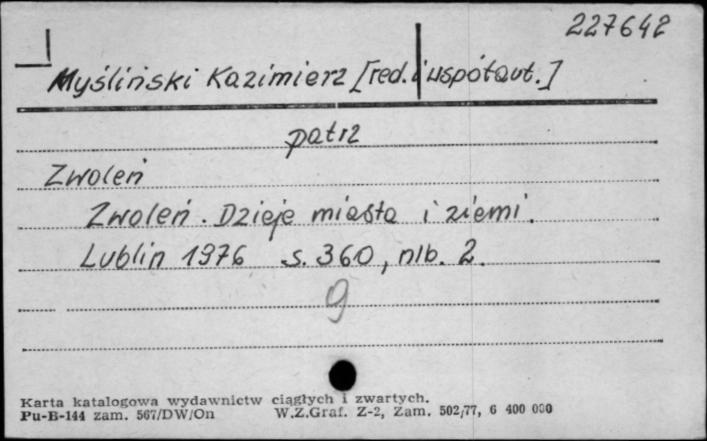 227642
Myśliński Kazimierz [red. i współaut.]
patrz
Zwoleń
Zwoleń. Dzieje miasta i ziemi.
Lublin 1976 s. 360, nlb. 2.
g
Karta katalogowa wydawnictw ciągłych i zwartych.
Pu-B-144 zam. 567/DW/On W.Z.Graf. Z-2, Zam. 502/77, 6 400 000